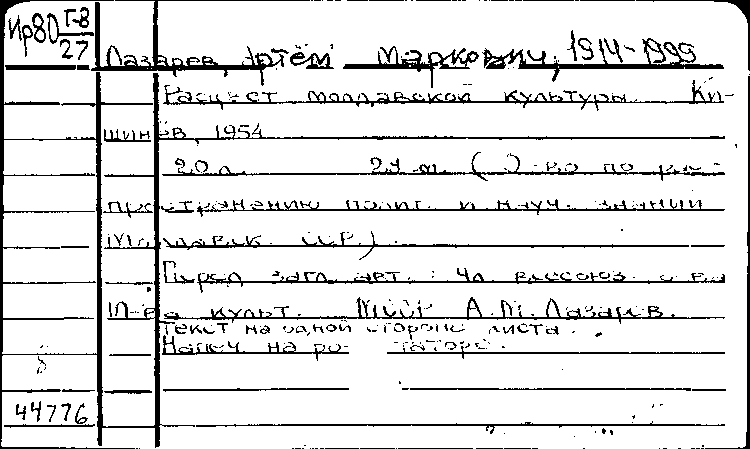 Ир80 Г-8
27
Лазарев, Артём Маркович, 1914-1999
Расцвет молдавской культуры. Ки-
шинёв, 1954
20 л. 29 см. (О-во по рас-
пространению полит. и науч. знаний
Молдавск. ССР.)
Перед загл. авт.: Чл. всесоюз. о-ва
м-ва культ. МССР А.М. Лазарев.
Текст на одной стороне листа.
Напеч. на ротаторе.
44776